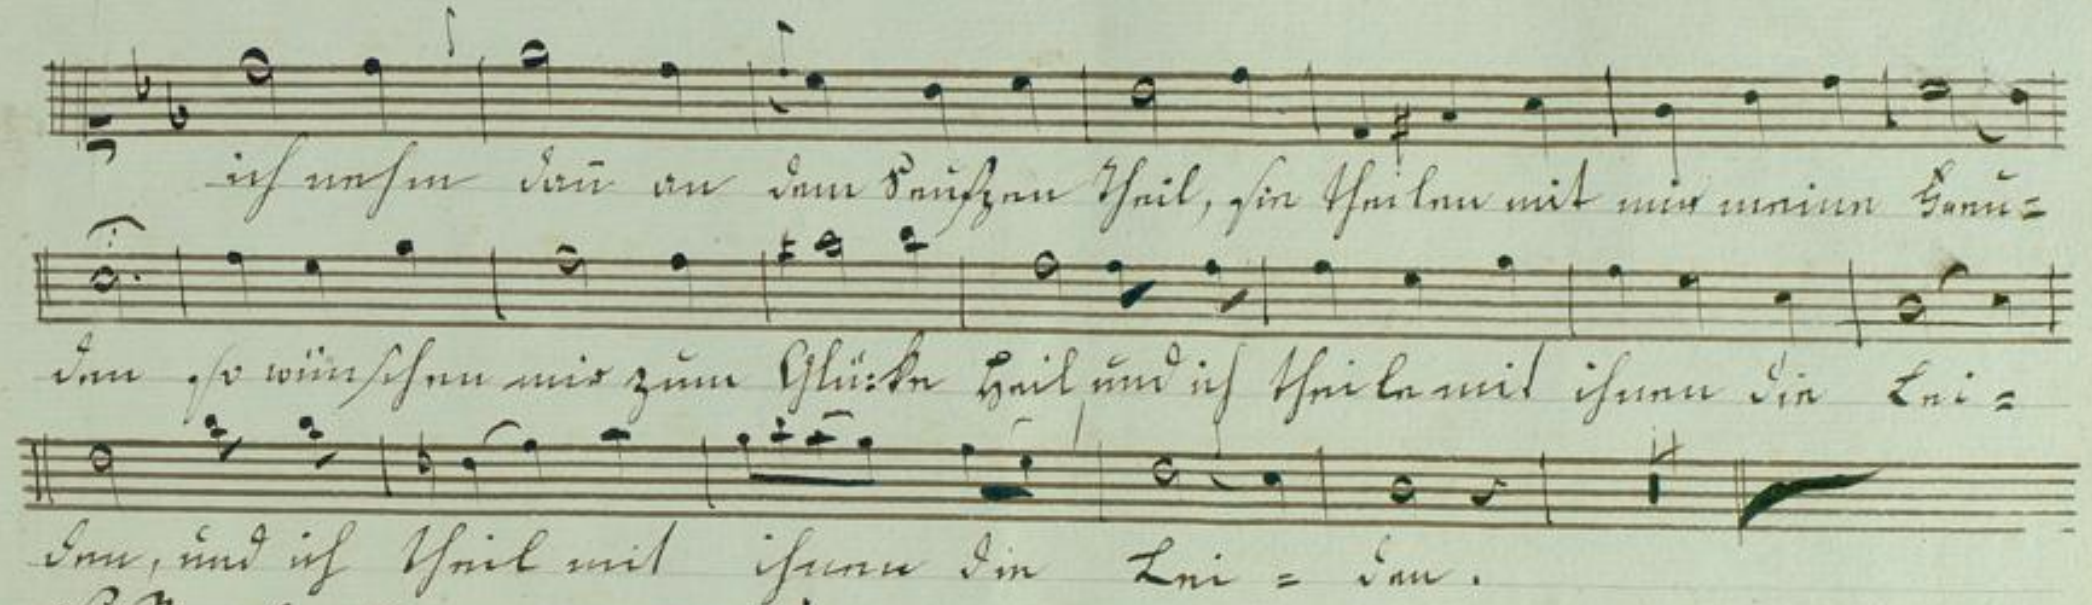 ich nehm dañ an dem Seufzen Theil, sie theilen mit mir meine Freu=
den so wünschen mir zum Glücke Heil und ich theile mit ihnen die Lei=
den, und ich theil mit ihnen die Lei = den.